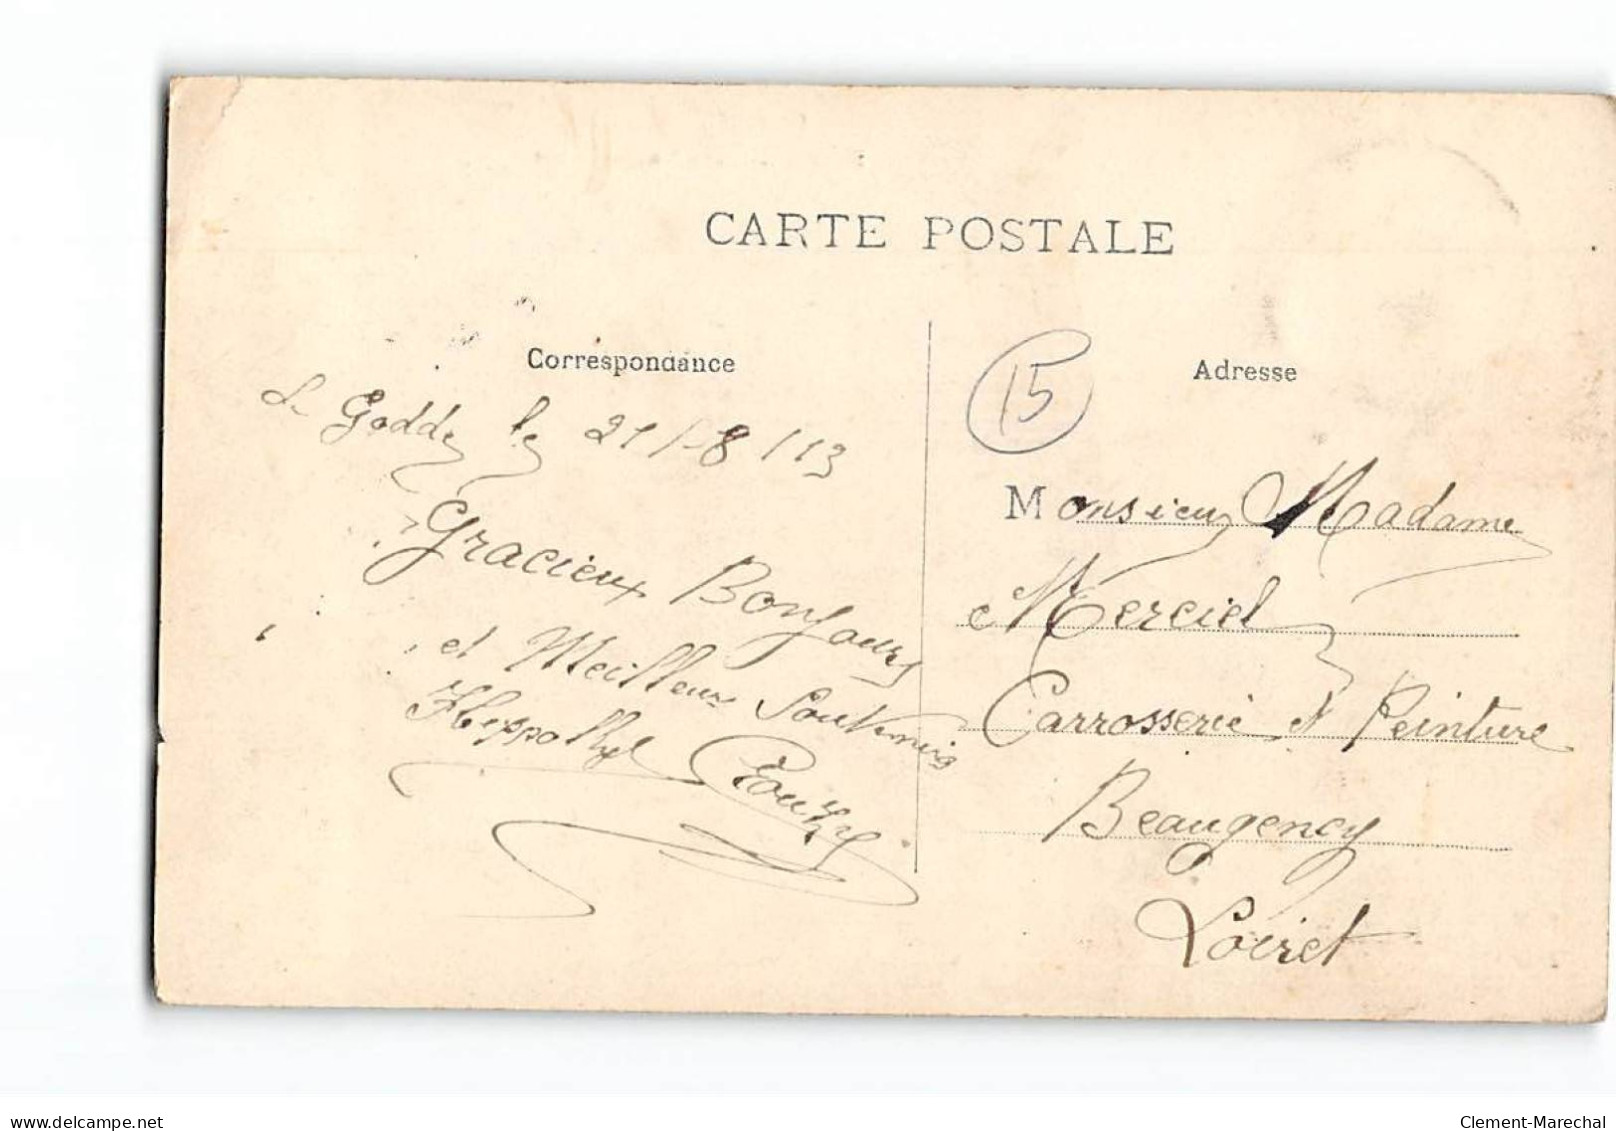 CARTE POSTALE
Correspondance
Godde le 21/8/13
Gracieux Bonjours
et Meilleurs Souvenirs
Hippolyte
Adresse
15
Monsieur Madame
Merciel
Carrosserie et Peinture
Beaugency
Loiret
delcampe.net
Clement-Marechal